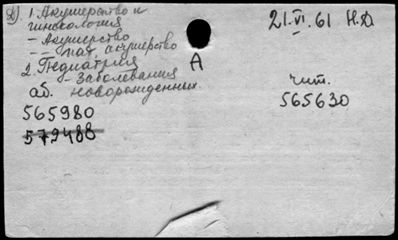 1. Акушерство и
гинекология
- Акушерство
- - пат. акушерство
2. Педиатрия
- Заболевания
аб. новорожденных
565980
579488
А
21.VI.61 Н.Д
чит.
565630